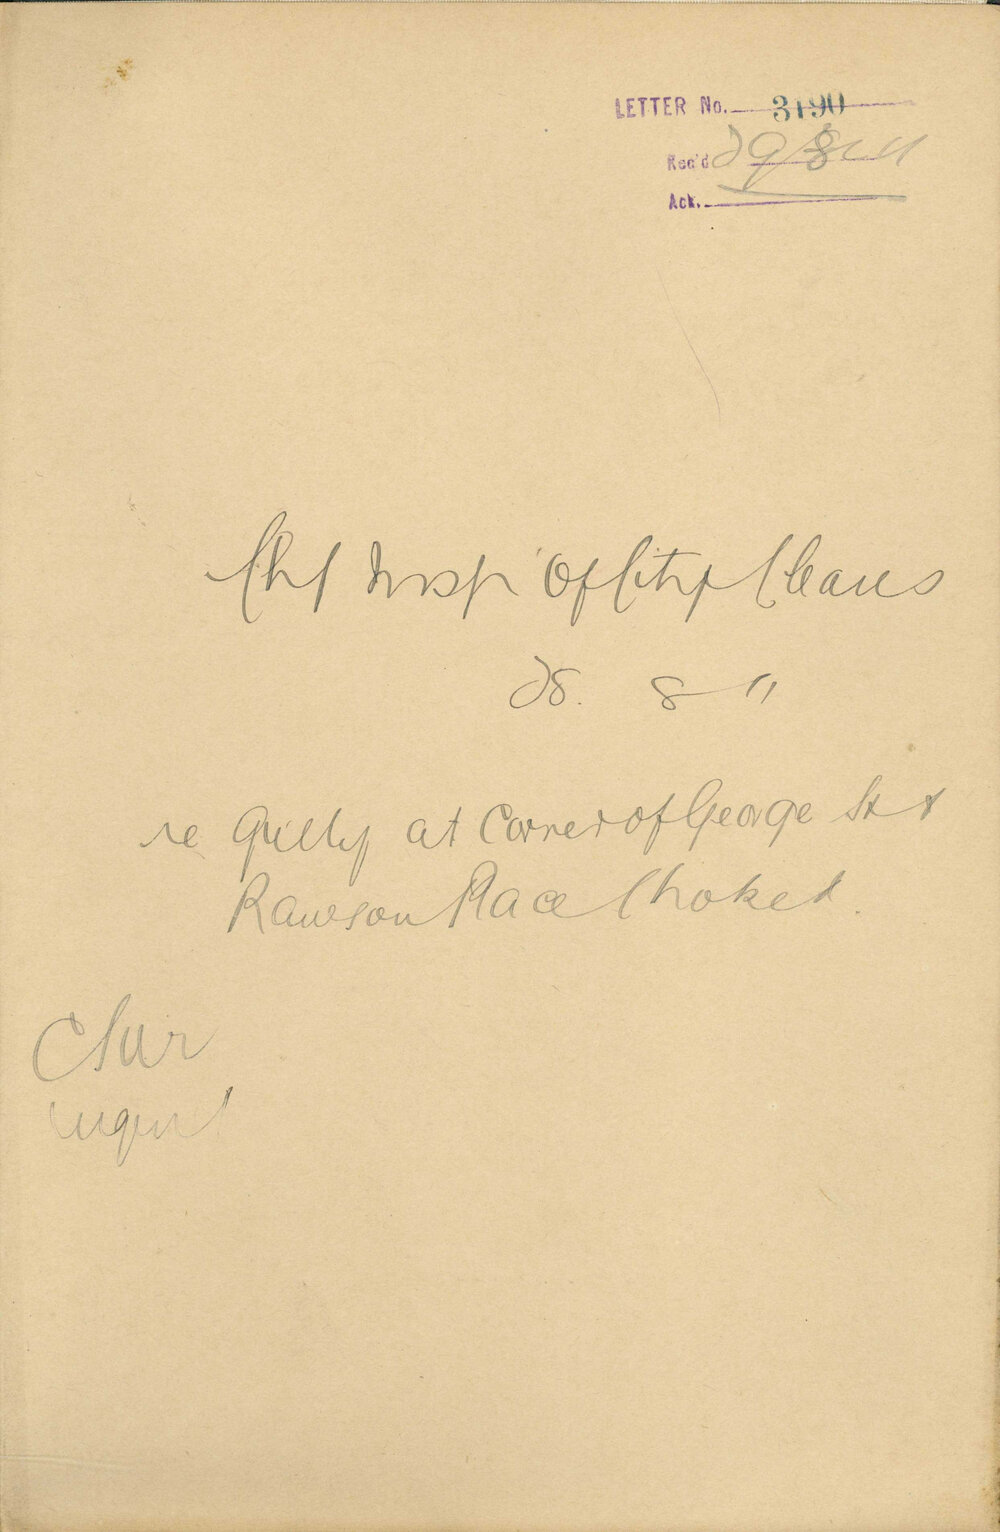 LETTER No. 3190
Rec'd 29/8/11
Ack.
Chf Insp Of City Cleans
28. 8 11
re Gully at Corner of George St &
Rawson Place Choked.
C Sur
urgent